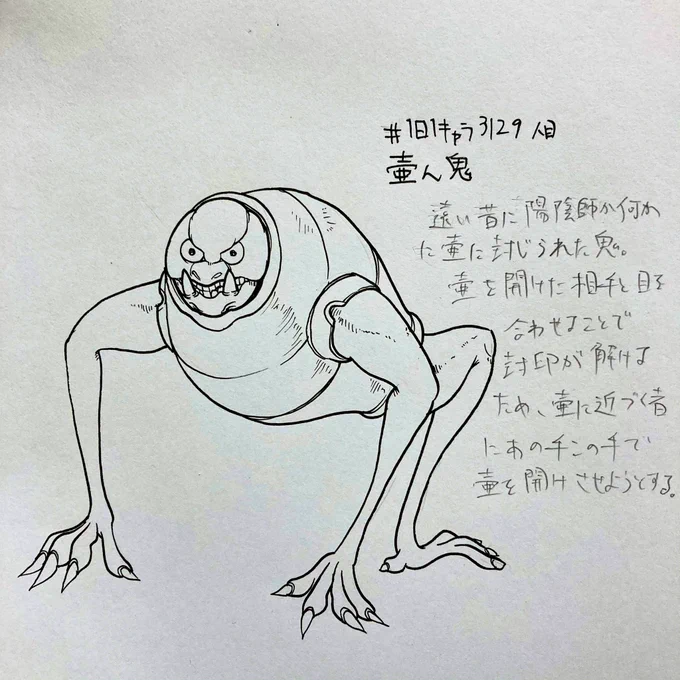 #1日1キャラ3129人目
壷ん鬼
遠い昔に陽陰師か何か
に壷に封じられた鬼。
壷を開けた相手と目を
合わせることで
封印が解ける
ため、壷に近づく者
にあの手この手で
壷を開けさせようとする。